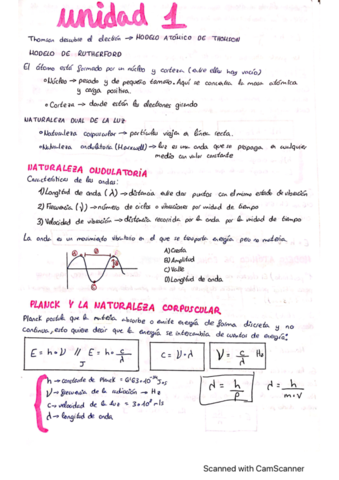 unidad 1
Thomson descubre el electrón → MODELO ATÓMICO DE THOMSON
MODELO DE RUTHERFORD
El átomo está formado por un núcleo y corteza (entre ellos hay vacío)
Núcleo → pesado y de pequeño tamaño. Aquí se concentra la masa atómica
y carga positiva.
Corteza → donde están los electrones girando
NATURALEZA DUAL DE LA LUZ
Naturaleza corpuscular → partículas viajan a línea recta.
Naturaleza ondulatoria (Maxwell) → luz es una onda que se propaga a cualquier
medio con valor constante
NATURALEZA ONDULATORIA
Características de las ondas:
1) Longitud de onda (λ) → distancia entre dos puntos con el mismo estado de vibración
2) Frecuencia (ν) → número de ciclos o vibraciones por unidad de tiempo
3) Velocidad de vibración → distancia recorrida por la onda por la unidad de tiempo
La onda es un movimiento vibratorio en el que se transporta energía pero no materia.
A) Cresta
B) Amplitud
C) Valle
D) Longitud de onda
PLANCK Y LA NATURALEZA CORPUSCULAR
Planck postula que la materia absorbe o emite energía de forma discreta y no
continua, esto quiere decir que la energía se intercambia de cuantos de energía:
E = h·ν // E = h·c/λ
J
c = ν·λ
ν = c/λ Hz
h → constante de Planck = 6'63·10⁻³⁴ J·s
ν → frecuencia de la radiación → Hz
c → velocidad de la luz = 3·10⁸ m/s
λ → longitud de onda
λ = h/p
λ = h/m·v
Scanned with CamScanner